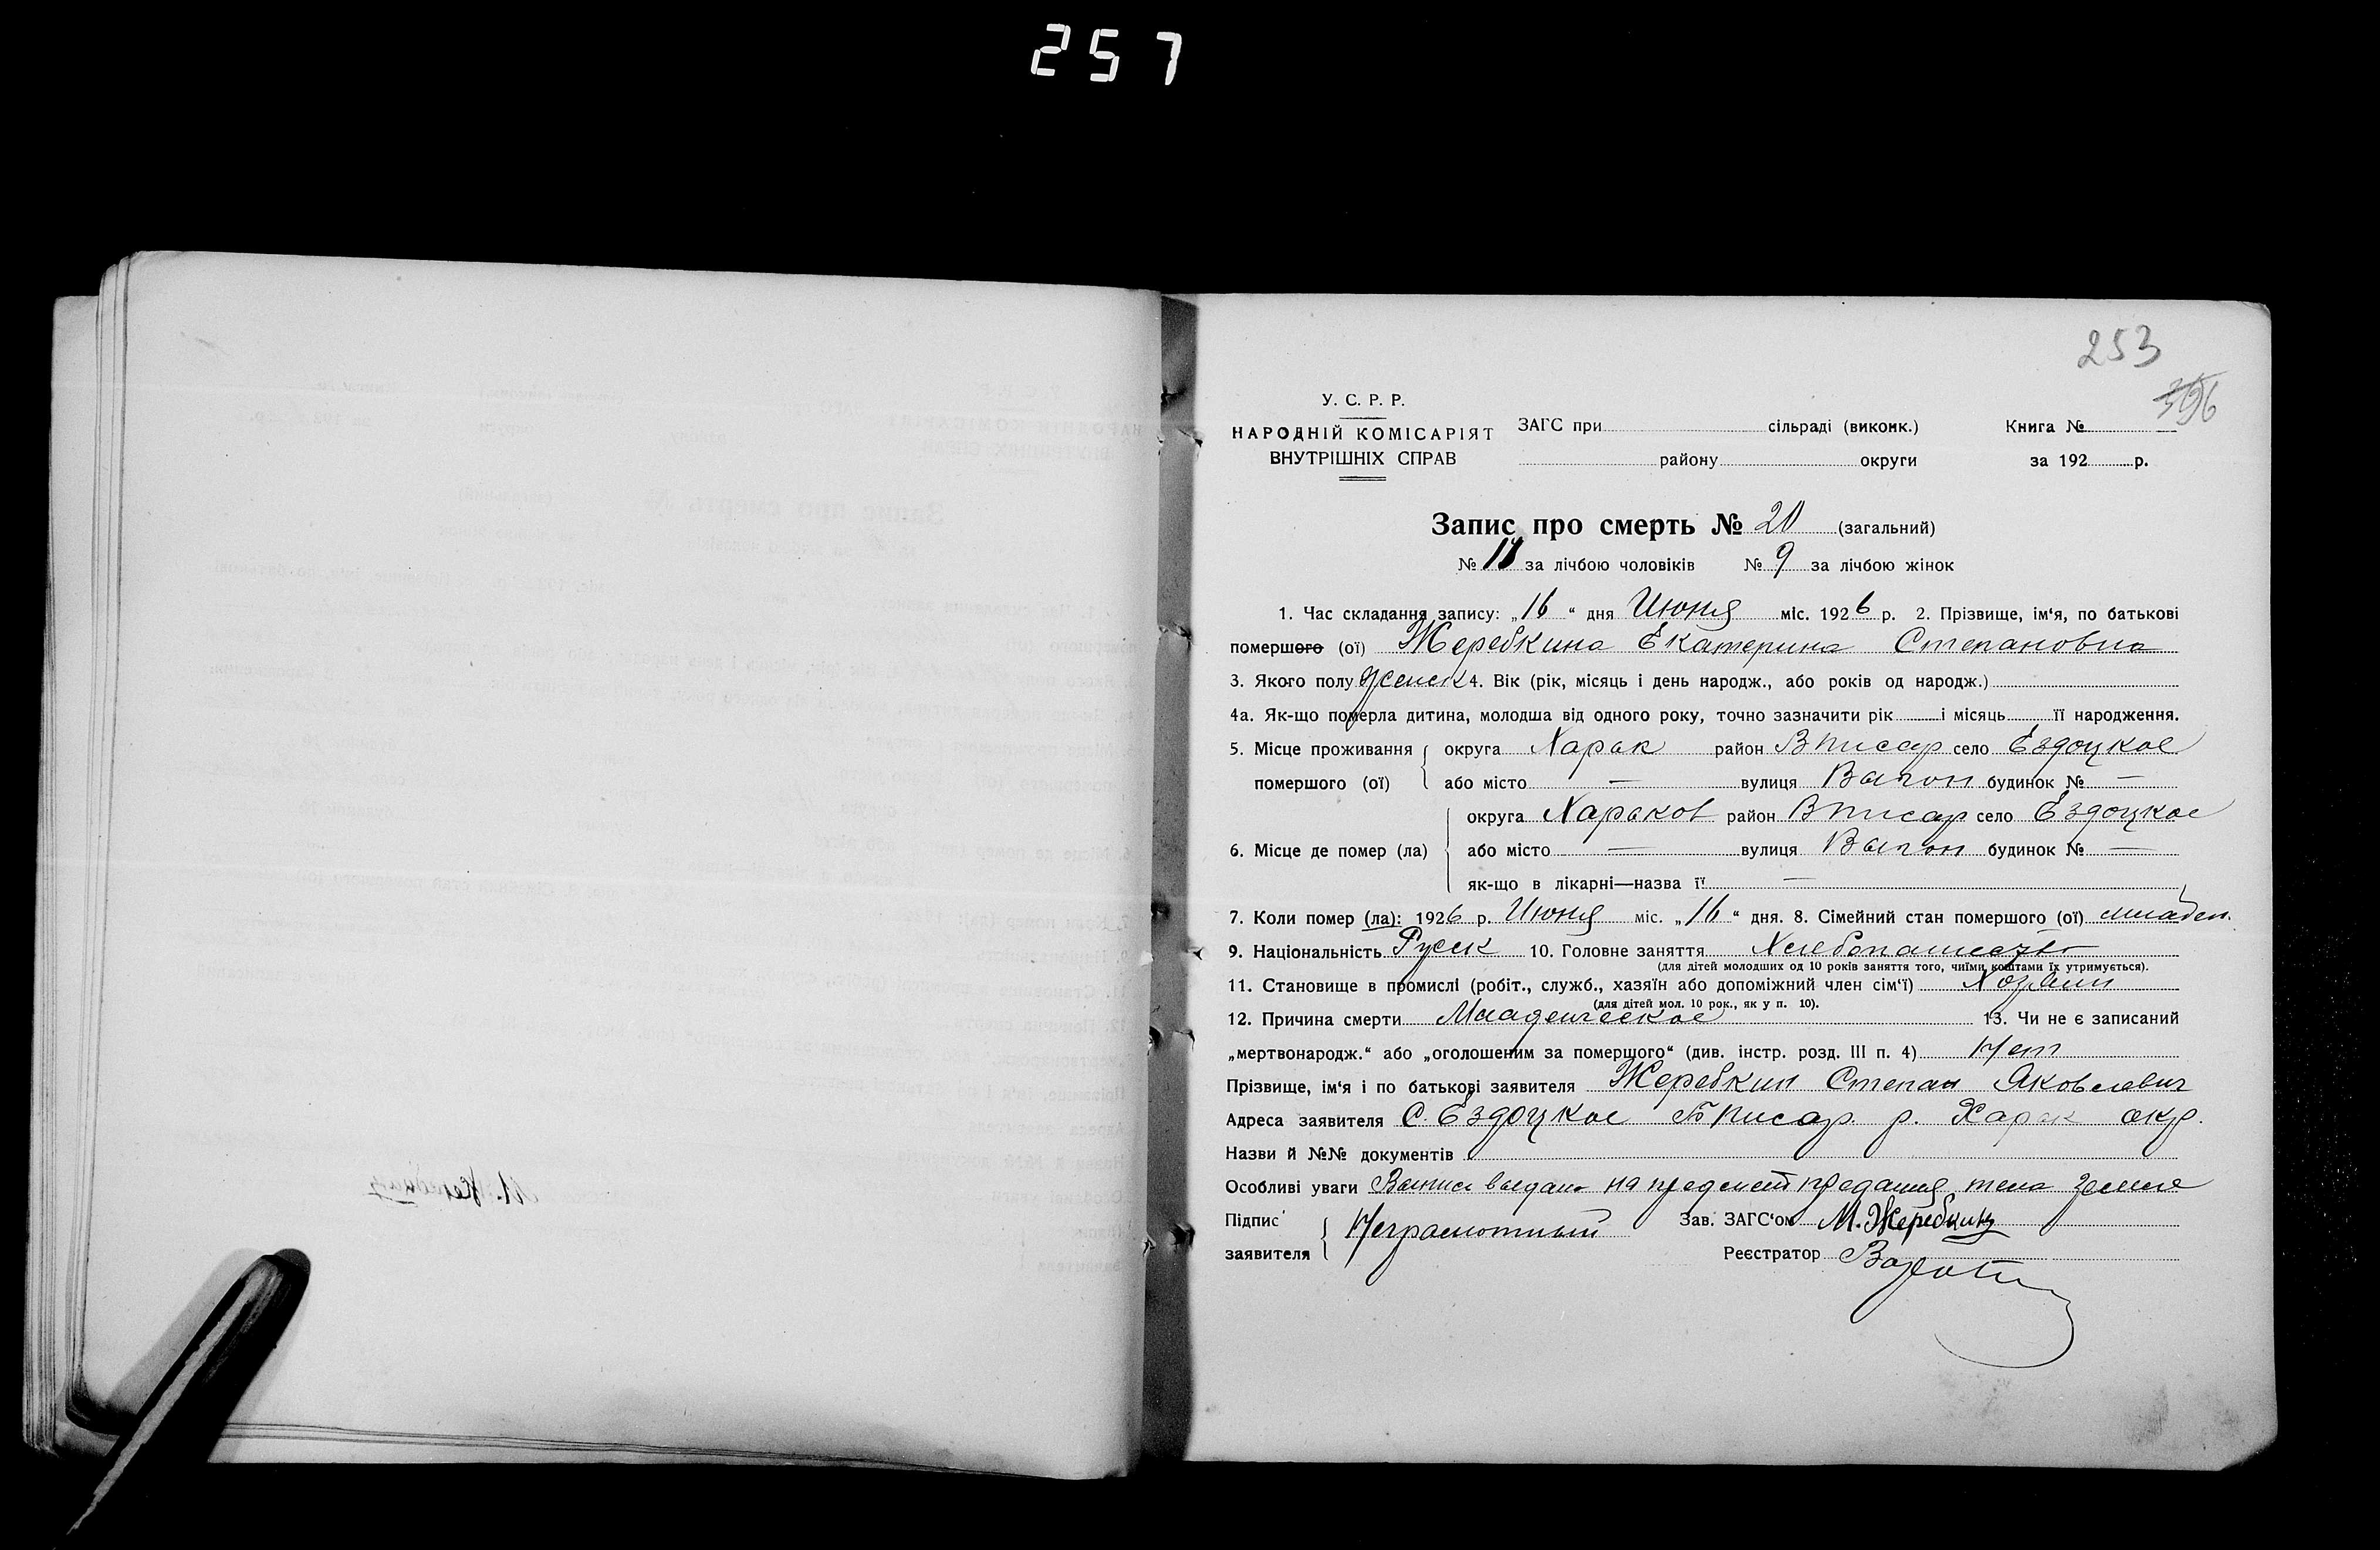 257
253
396
У. С. Р. Р.
НАРОДНІЙ КОМІСАРІЯТ
ВНУТРІШНІХ СПРАВ
ЗАГС при сільраді (виконк.)
району округи
Книга №
за 192 р.
Запис про смерть № 20 (загальний)
№ 11 за лічбою чоловіків № 9 за лічбою жінок
1. Час складання запису: „16“ дня Июня міс. 1926 р. 2. Прізвище, ім‘я, по батькові
помершого (ої) Жеребкина Екатерина Степановна
3. Якого полу женск 4. Вік (рік, місяць і день народж., або років од народж.)
4а. Як-що померла дитина, молодша від одного року, точно зазначити рік і місяць її народження.
5. Місце проживання помершого (ої) округа Харак район В Писар село Ездоцкое
або місто — вулиця Вагон будинок № —
6. Місце де помер (ла) округа Хараков район В Писар село Ездоцкое
або місто — вулиця Вагон будинок № —
як-що в лікарні—назва її —
7. Коли помер (ла): 1926 р. Июня міс. „16“ дня. 8. Сімейний стан помершого (ої) младен.
9. Національність Русск 10. Головне заняття Хлебопашест
(для дітей молодших од 10 років заняття того, чиїми коштами їх утримується).
11. Становище в промислі (робіт., служб., хазяїн або допоміжний член сім‘ї) Хозяин
(для дітей мол. 10 рок., як у п. 10).
12. Причина смерти Младенческое 13. Чи не є записаний
„мертвонародж.“ або „оголошеним за помершого“ (див. інстр. розд. III п. 4) Нет
Прізвище, ім‘я і по батькові заявителя Жеребкин Степан Яковлевич
Адреса заявителя С. Ездоцкое Б Писар. р. Харак окр.
Назви й №№ документів
Особливі уваги на предмет предания тела земле
Підпис заявителя Неграмотный
Зав. ЗАГС‘ом М. Жеребкин
Реєстратор